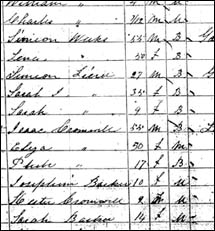 William " 4 M M
Charles " 3/12 M M
Simeon Wake 55 M B Ga
Lena " 50 f B
Simeon 27 M B G
Sarah J " 35 f B
Sarah " 9 f B
Isaac Cromwell 55 M B
Eliza " 50 f M
Pheb " 17 f B
Josephine Barker 10 f M
Cromwell 2 M
Sarah Barker 14 f M